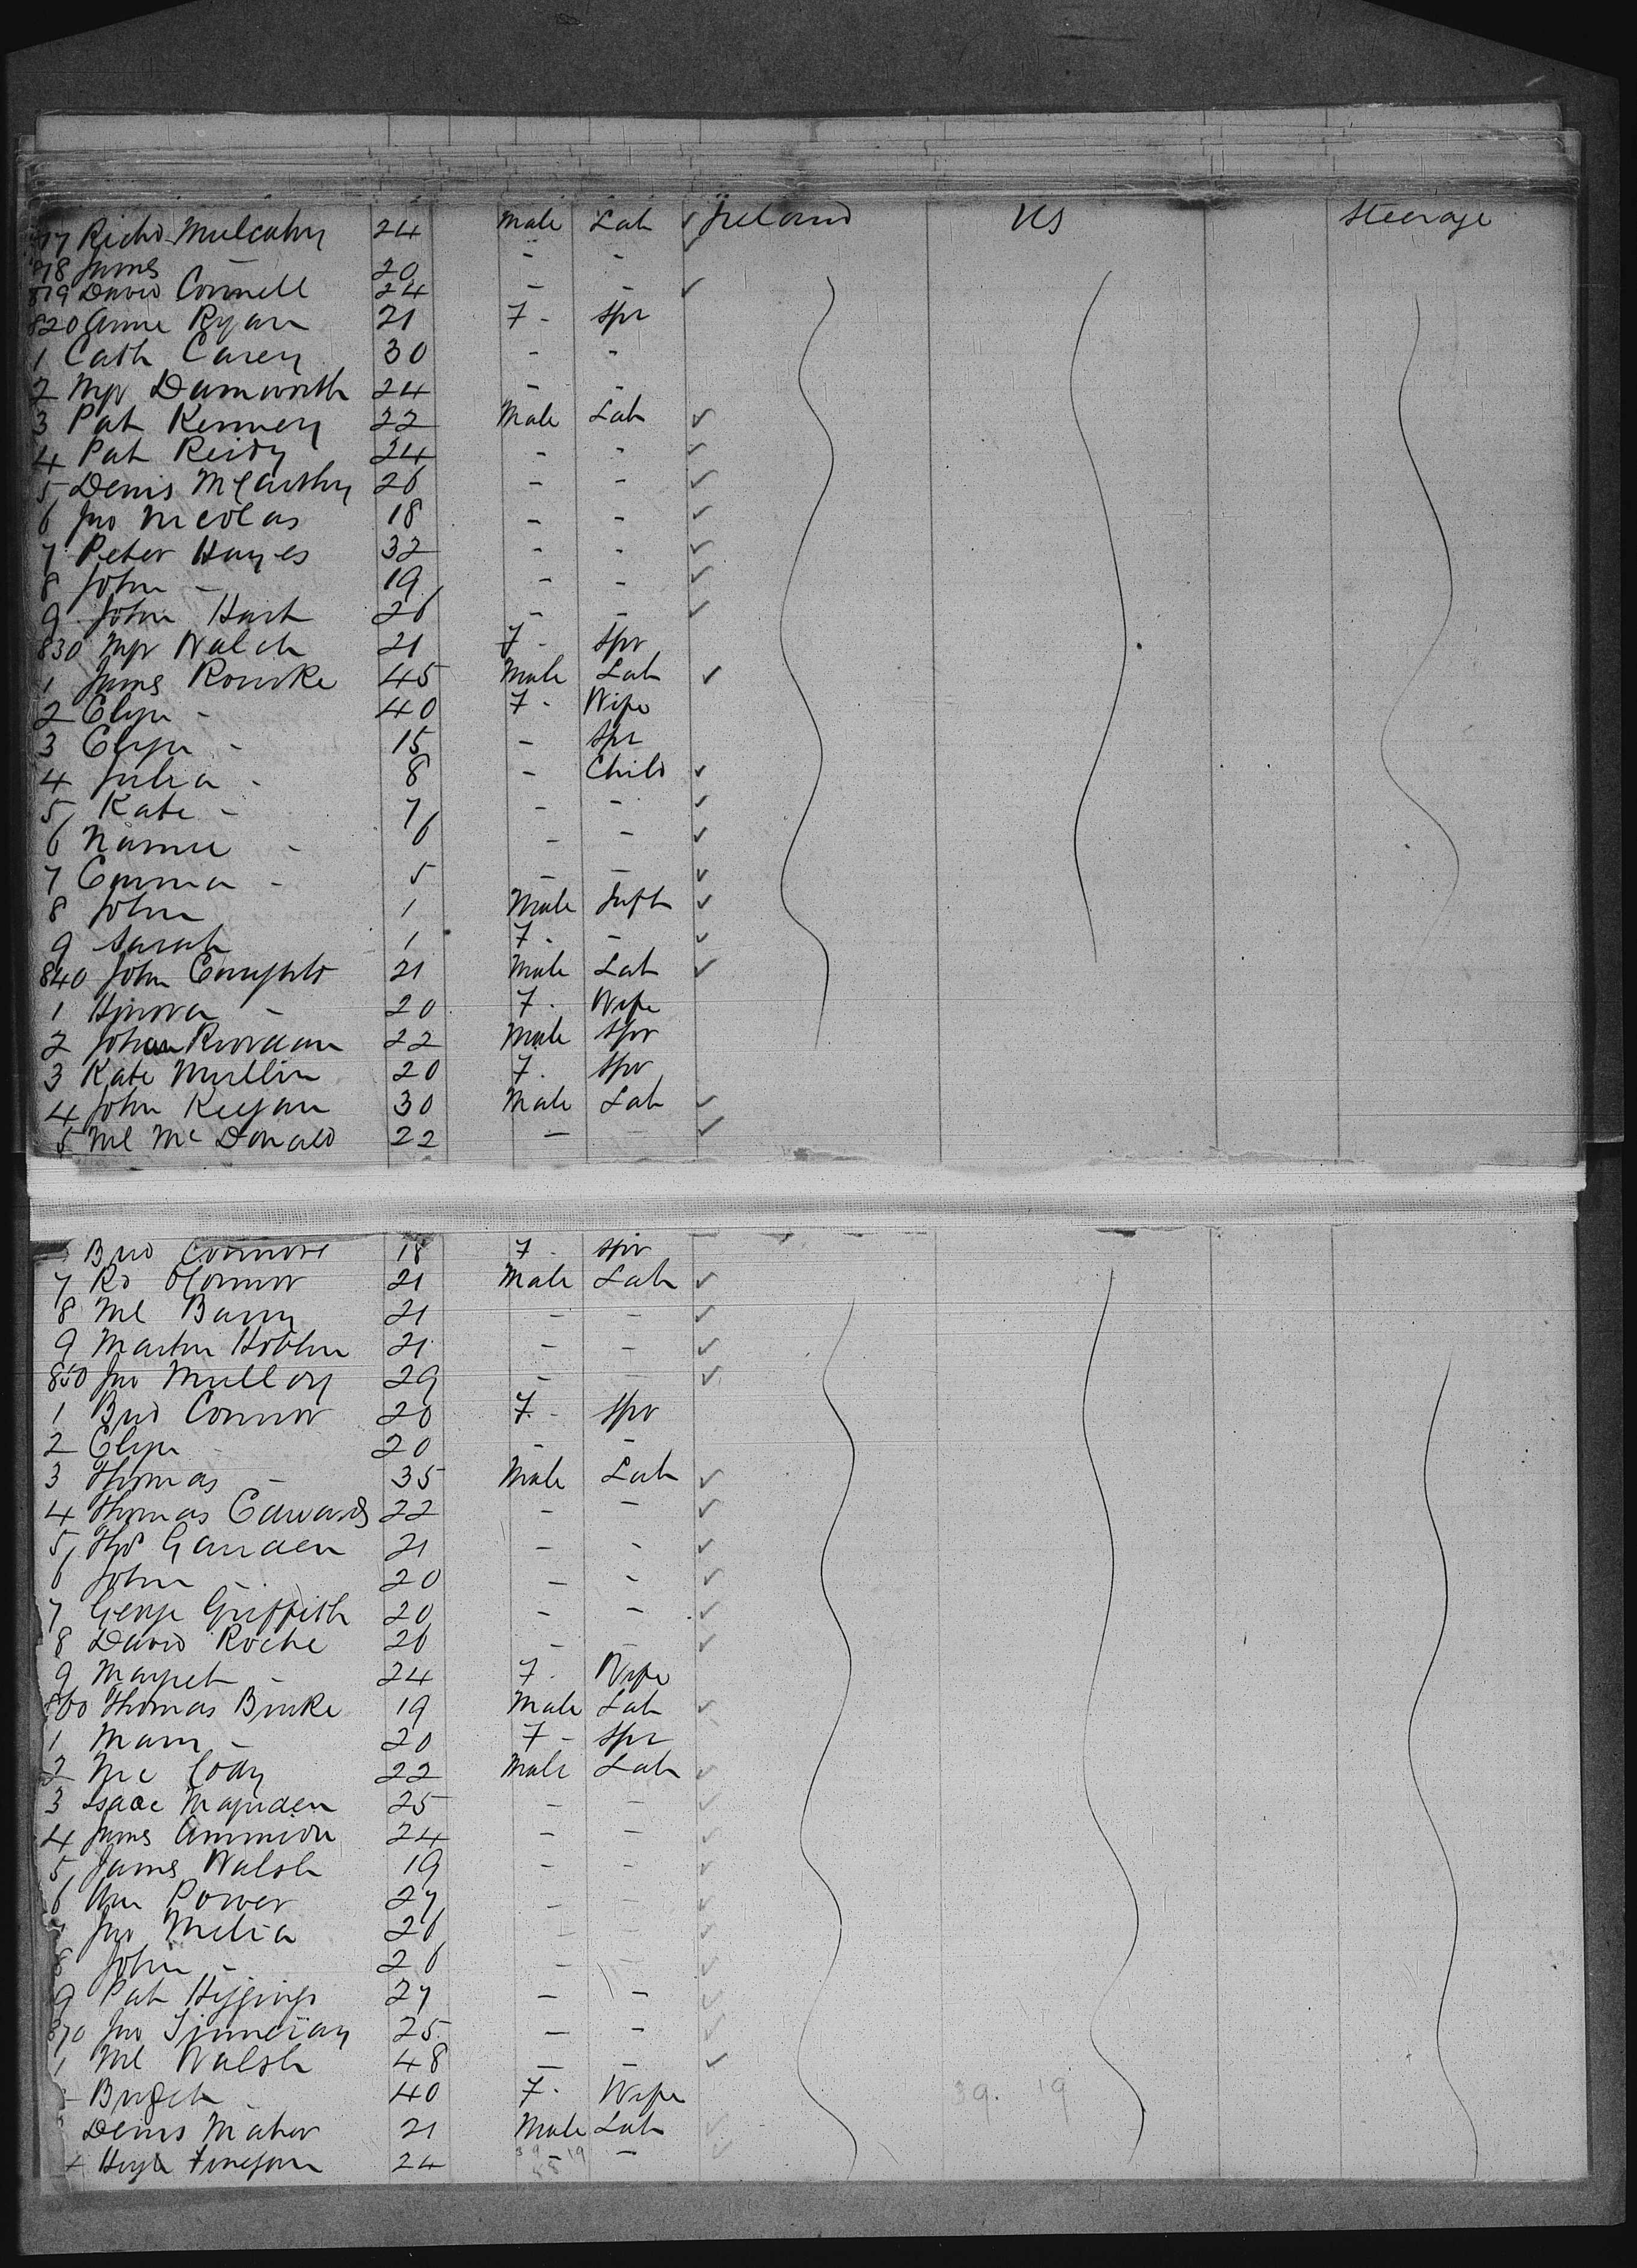 817 Richd Mulcahy 24 Male Lab ✓ Ireland US Steerage
818 James — 20 - -
819 David Connell 24 - - ✓
820 Anne Ryan 21 F - Spr
1 Cath Carey 30 - -
2 Mgt Damworth 24 - -
3 Pat Kenney 22 Male Lab ✓
4 Pat Reidy 24 - - ✓
5 Denis McCarthy 26 - - ✓
6 Jno Nicolas 18 - - ✓
7 Peter Hayes 32 - - ✓
8 John - 19 - - ✓
9 John Hart 26 - - ✓
830 Mgt Walsh 21 F - Spr
1 James Rourke 45 Male Lab ✓
2 Eliza - 40 F - Wife
3 Eliza - 15 - Spr
4 Julia - 8 - Child ✓
5 Kate - 7 - - ✓
6 Nannie - 6 - - ✓
7 Emma - 5 - - ✓
8 John 1 Male Inft ✓
9 Sarah 1 F - - ✓
840 John Enright 21 Male Lab ✓
1 Honora - 20 F - Wife
2 Johan Riordan 22 Male Spr
3 Kate Mullin 20 F - Spr
4 John Keegan 30 Male Lab ✓
5 Ml McDonald 22 - - ✓
Brid Connors 18 F - Spr
7 Rd OConnor 21 Male Lab ✓
8 Ml Barry 21 - - ✓
9 Martin Hoblin 21 - - ✓
850 Jno Mulloy 29 - - ✓
1 Brid Connor 20 F - Spr
2 Eliza - 20 - -
3 Thomas - 35 Male Lab ✓
4 Thomas Edwards 22 - - ✓
5 Thos Garden 21 - - ✓
6 John - 20 - - ✓
7 George Griffith 20 - - ✓
8 David Roche 26 - - ✓
9 Margret - 24 F - Wife
860 Thomas Burke 19 Male Lab ✓
1 Mary - 20 F - Spr
2 Mc Cody 22 Male Lab ✓
3 Isaac Magnden 25 - - ✓
4 James Ammion 24 - - ✓
5 James Walsh 19 - - ✓
6 Wm Power 27 - - ✓
7 Jno Melia 26 - - ✓
8 John - 26 - - ✓
9 Pat Higgins 27 - - ✓
870 Jno 25 - - ✓
1 Ml Walsh 48 - - ✓
Bridget - 40 F - Wife 39. 19
Denis Maher 21 Male Lab ✓
4 Hugh Finegan 24 - - ✓
39 19
58